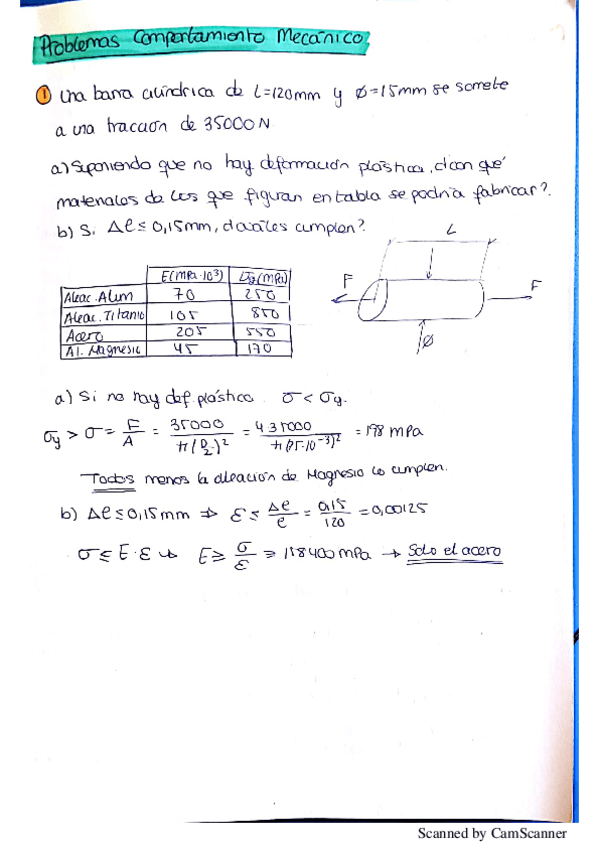 Problemas Comportamiento Mecánico
① Una barra cilíndrica de L=120mm y ø=15mm se somete
a una tracción de 35000N
a) Suponiendo que no hay deformación plástica, ¿con qué
materiales de los que figuran en tabla se podría fabricar?
b) Si Δl ≤ 0,15mm, ¿cuáles cumplen?
L
F F
ø
E(MPa·10³) σy(MPa)
Aleac. Alum 70 250
Aleac. Titanio 105 850
Acero 205 550
Al. Magnesio 45 170
a) Si no hay def. plástica σ < σy.
σy > σ = F/A = 35000/π(D/2)² = 4·35000/π(15·10⁻³)² = 198 MPa
Todos menos la aleación de Magnesio lo cumplen.
b) Δl ≤ 0,15mm ⇒ ε ≤ Δl/l = 0,15/120 = 0,00125
σ ≤ E·ε → E ≥ σ/ε ≥ 158400 MPa → Solo el acero
Scanned by CamScanner